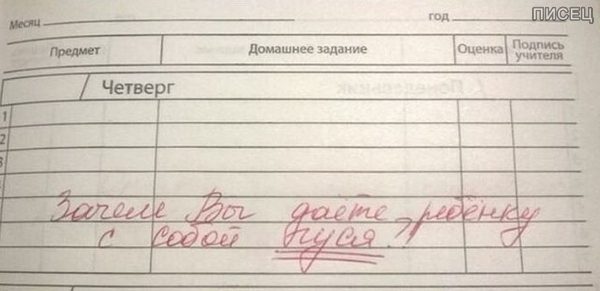 ПИСЕЦ
Месяц год
Предмет Домашнее задание Оценка Подпись учителя
Четверг
1
2
3
Зачем Вы даёте ребёнку
с собой гуся?